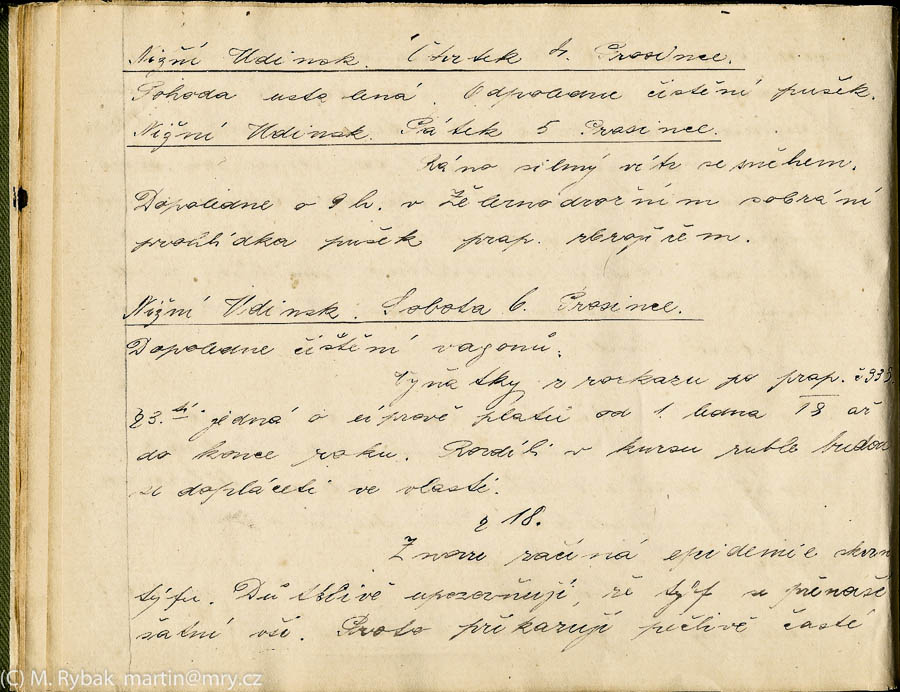 Nižní Udinsk. Čtvrtek 4. Prosince.
Pohoda ustálená. Odpoledne čistění pušek.
Nižní Udinsk. Pátek 5 Prosince.
Ráno silný vítr se sněhem.
Dopoledne o 9 h. v Železnodrožním sobrání
prohlídka pušek prap. zbrojířem.
Nižní Udinsk. Sobota 6. Prosince.
Dopoledne čištění vagonů.
Výňatky z rozkazu po prap. č 335.
§3. jedná o úpravě platů od 1. ledna 18 až
do konce roku. Rozdíli v kursu ruble budou
se dopláceti ve vlasti.
§ 18.
Znovu začíná epidemie skvrn
týfu. Důtklivě upozorňuji, že týf se přenáší
šatní vší. Proto přikazuji pečlivě časté
(C) M. Rybak martin@mry.cz